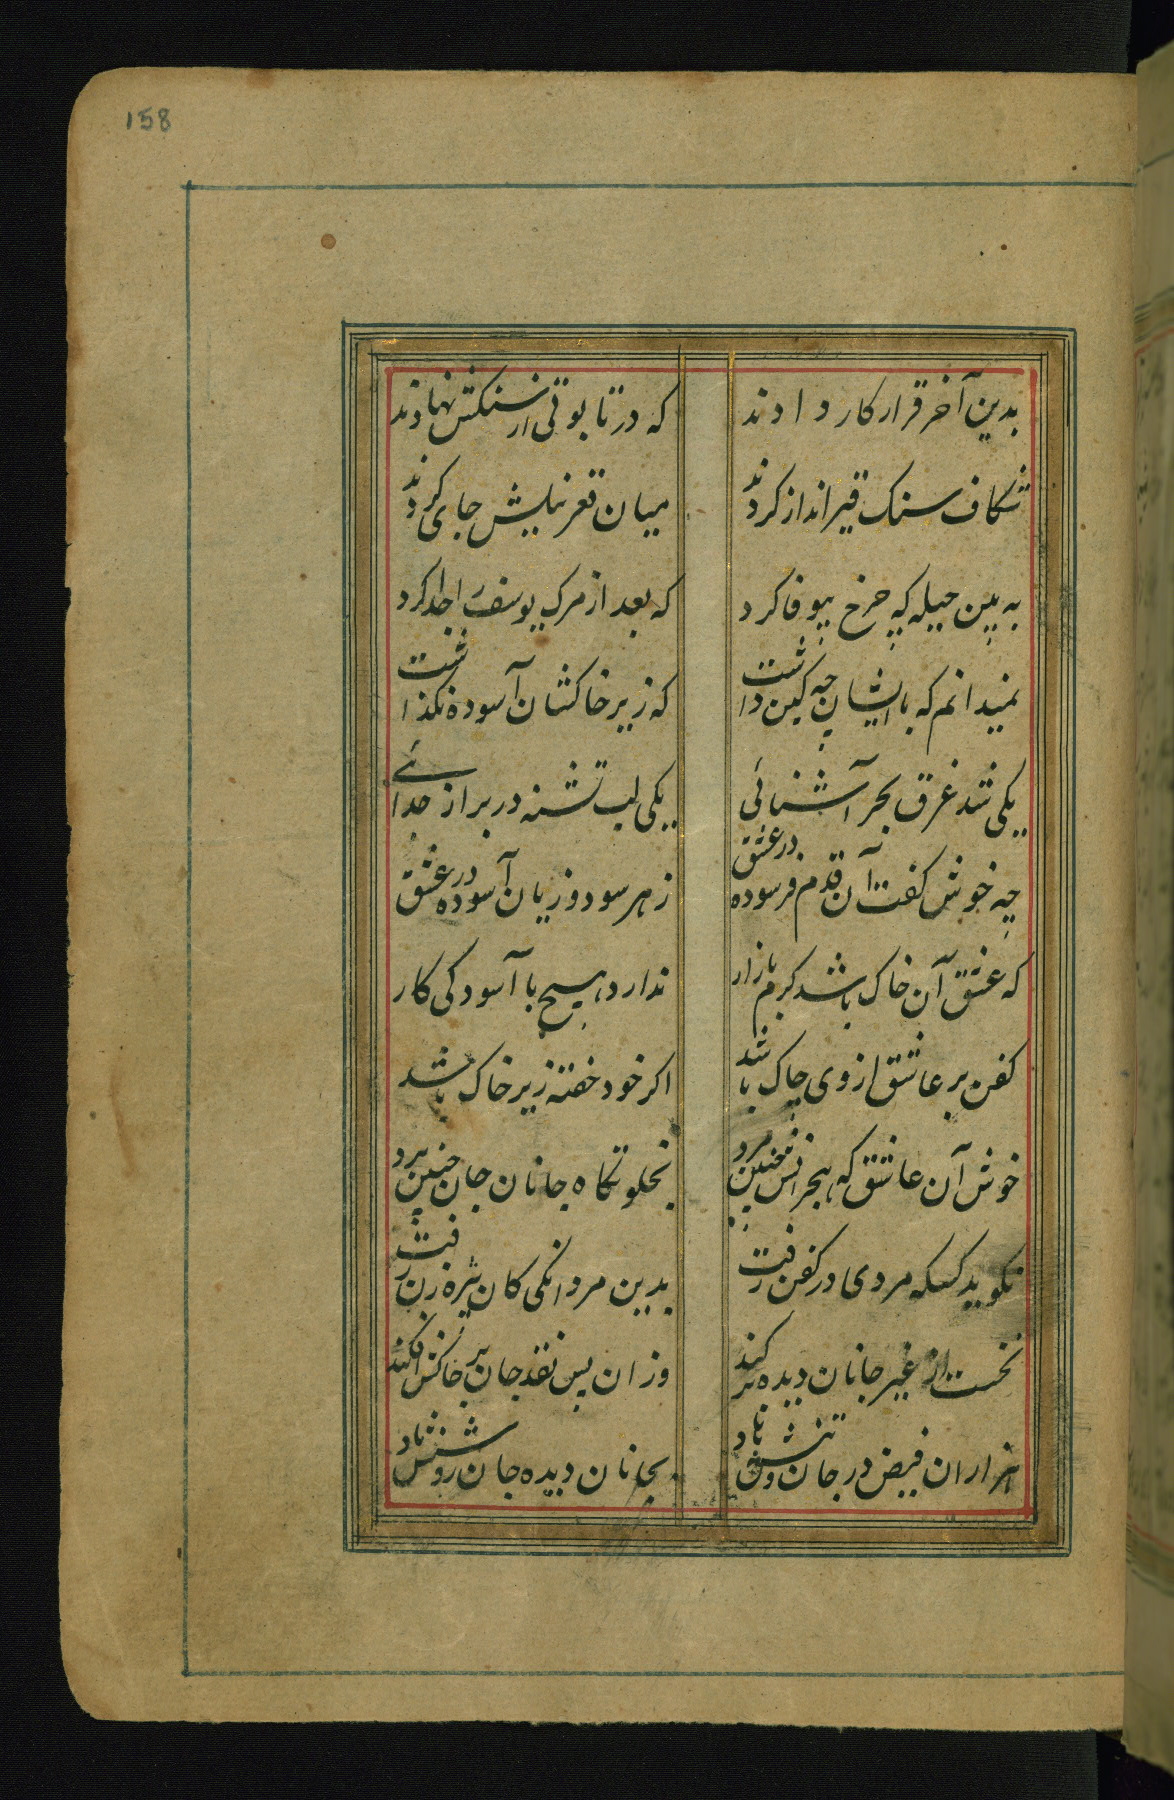 158
بدین آخر قرار کار دادند
که در تابوتی از سنکش نهادند
شکاف سنک قیر انداز کردند
میان قعر نیلش جای کردند
به بین حیله که چرخ بیوفا کرد
که بعد از مرک یوسف را جدا کرد
نمیدانم که با ایشان چه کین داشت
که زیر خاکشان آسوده نکذاشت
یکی شد غرق بحر آشنائی
یکی لب تشنه در بر از جدائے
چه خوش کفت آن قدم فرسوده در عشق
ز هر سود و زیان آسوده در عشق
که عشق آن خاک باشد کرم بازار
ندارد هیچ با آسودکی کار
کفن بر عاشق از وی چاک باشد
اکر خود خفته زیر خاک باشد
خوش آن عاشق که هجرانش چنین مرد
بخلوتکاه جانان جان چنین برد
نکوید کسکه مردی در کفن رفت
بدین مردانکی کان شیره زن رفت
نخست از غیر جانان دیده بر کند
وزان پس نقد جان بر خاکش افکند
هزاران فیض در جان و تنش باد
بجانان دیده جان روشنش باد